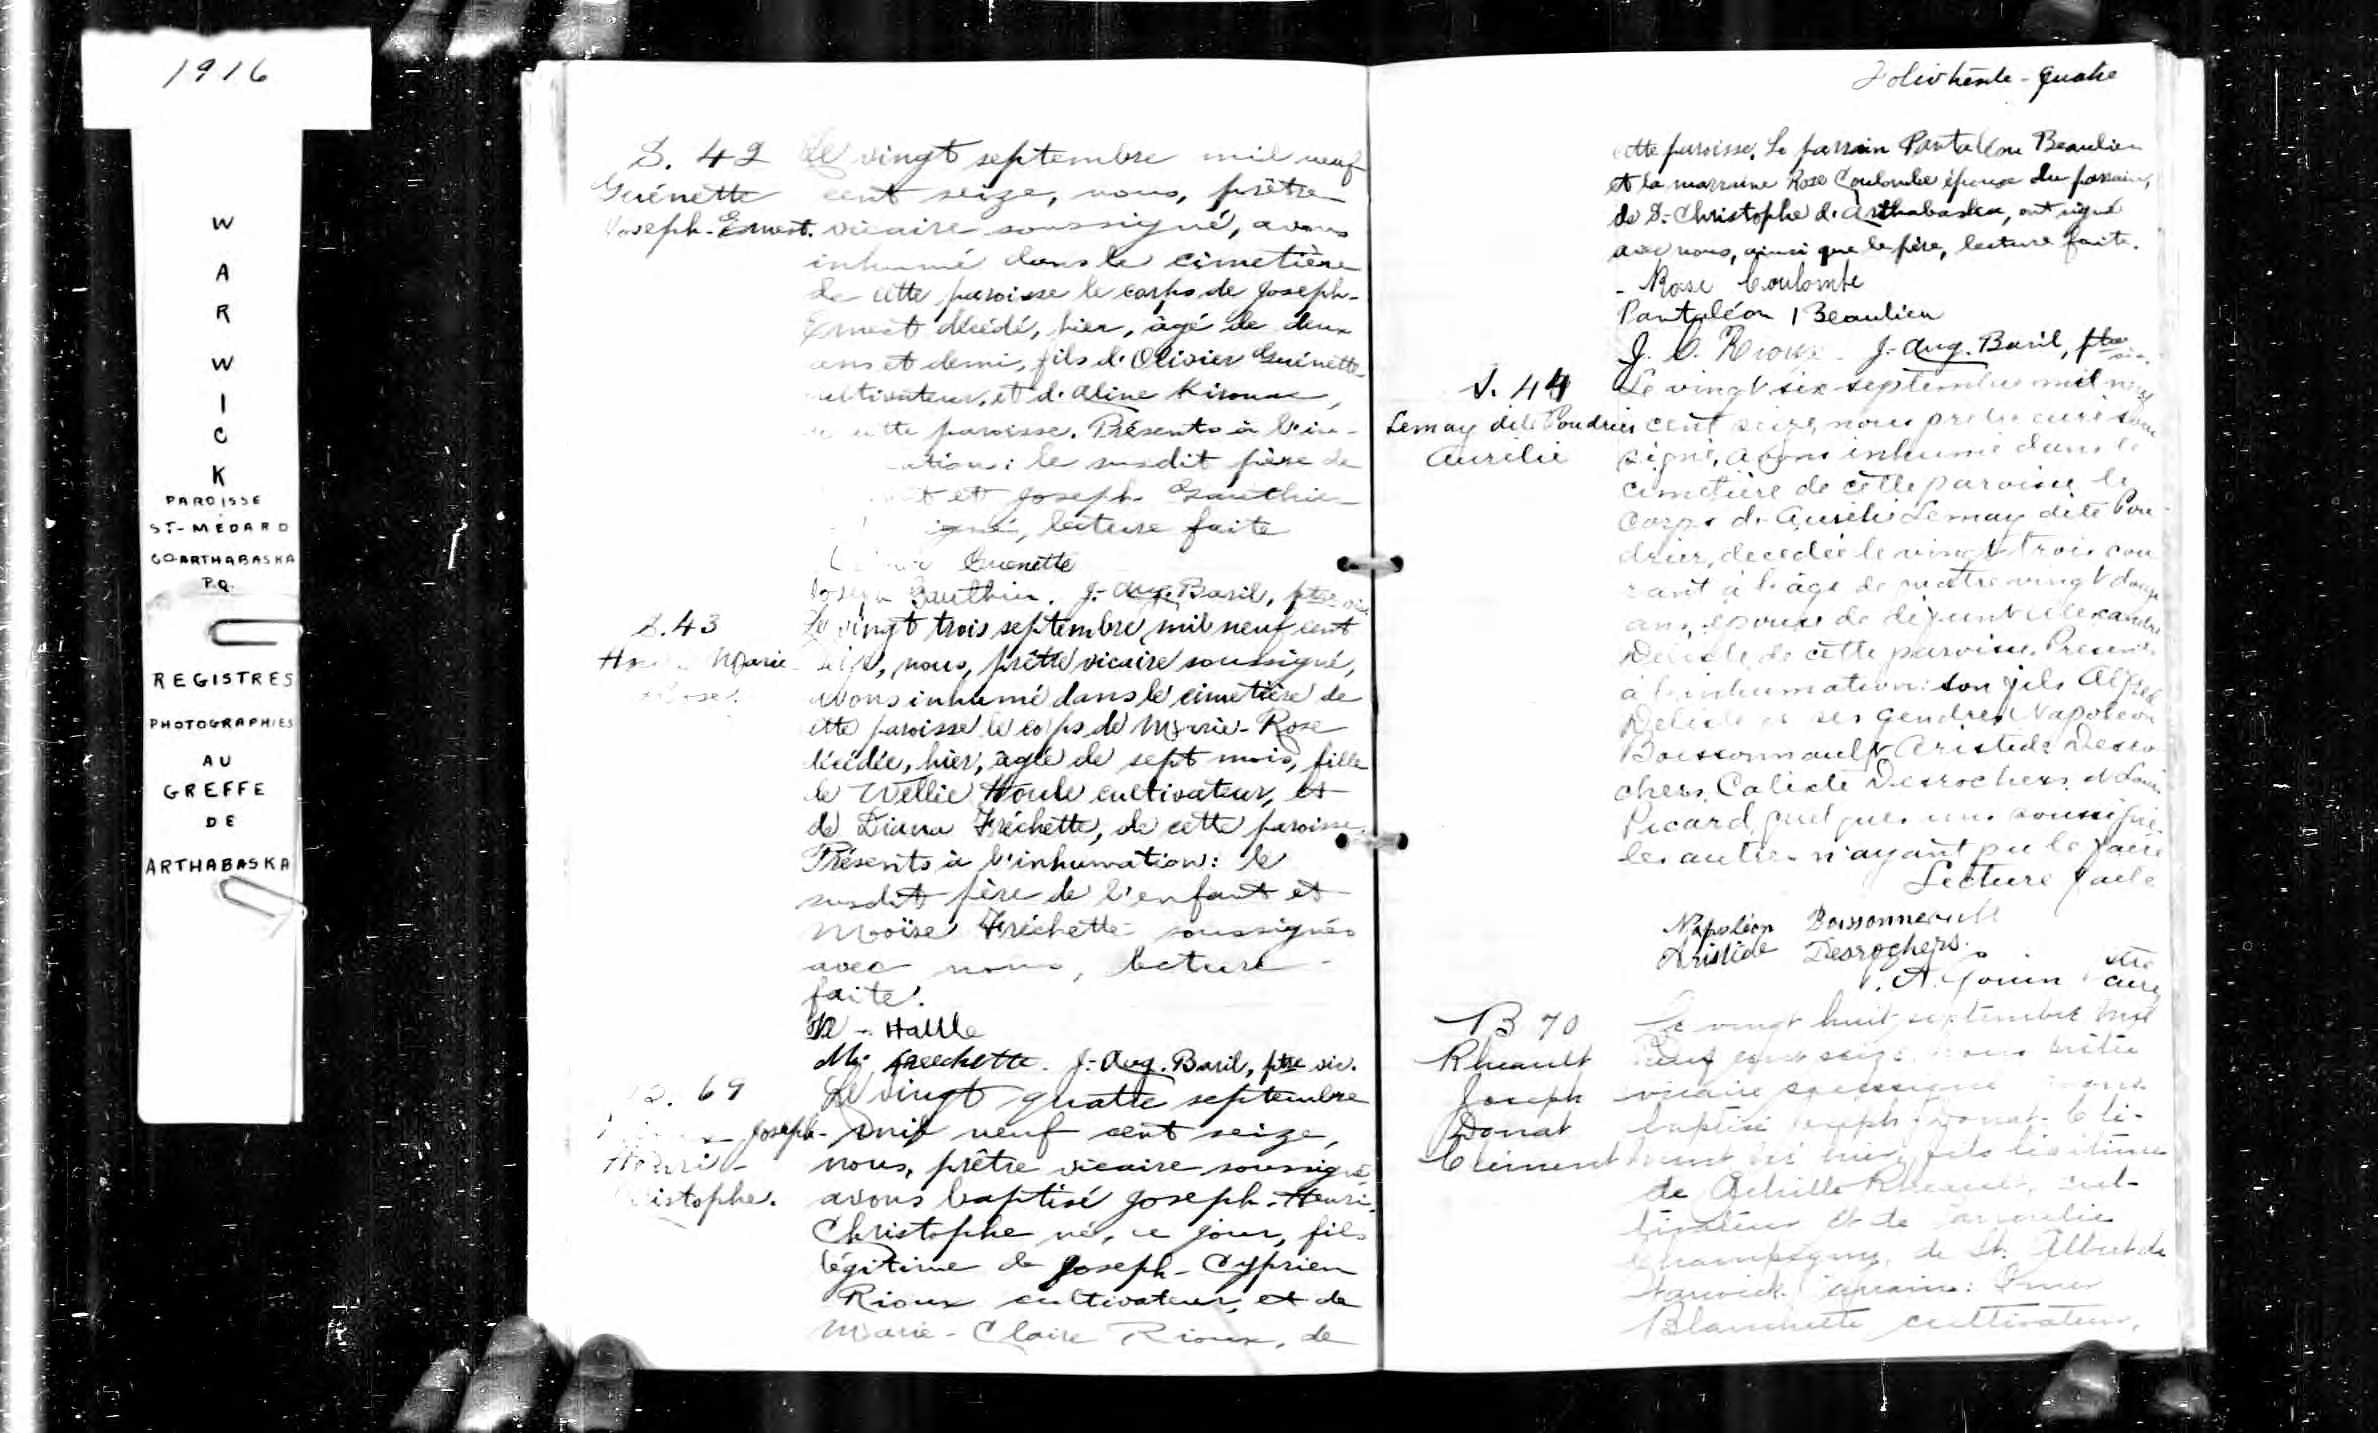 1916
WARWICK
PAROISSE
ST-MÉDARD
CO-ARTHABASKA
P.Q.
REGISTRES
PHOTOGRAPHIES
AU
GREFFE
DE
ARTHABASKA
S. 42
Guénette
Joseph-Ernest.
Le vingt septembre mil neuf
cent seize, nous, prêtre
vicaire soussigné, avons
inhumé dans le cimetière
de cette paroisse le corps de Joseph-
Ernest décédé, hier, âgé de deux
ans et demi, fils d'Olivier Guénette
cultivateur, et d'Aline Kirouac,
cette paroisse. Présents à l'in-
ation: le susdit père de
et Joseph Gauthier
igné, lecture faite
Guenette
Joseph Gauthier. J.-Aug. Baril, ptre vic.
S. 43
Marie
Rose.
Le vingt trois septembre mil neuf cent
seize, nous, prêtre vicaire soussigné,
avons inhumé dans le cimetière de
cette paroisse le corps de Marie-Rose
décédée, hier, âgée de sept mois, fille
de Wellie Houle cultivateur, et
de Diana Fréchette, de cette paroisse.
Présents à l'inhumation: le
susdit père de l'enfant et
Moïse Fréchette soussignés
avec nous, lecture
faite.
Houle
Frechette. J.-Aug. Baril, ptre vic.
B. 69
Joseph-
Henri-
istophe.
Le vingt quatre septembre
mil neuf cent seize,
nous, prêtre vicaire soussigné,
avons baptisé Joseph-Henri-
Christophe né, ce jour, fils
légitime de Joseph-Cyprien
Rioux cultivateur, et de
Marie-Claire Rioux, de
Folio trente-quatre
cette paroisse. Le parrain Pantaléon Beaulieu
et la marraine Rose Coulombe épouse du parrain,
de S.-Christophe d'Arthabaska, ont signé
avec nous, ainsi que le père, lecture faite.
- Rose Coulombe
Pantaléon Beaulieu
J. C. Rioux J.-Aug. Baril, ptre vic.
S. 44
Lemay dite Poudrier
Aurélie
Le vingt six septembre mil neuf
cent seize, nous prêtre curé sous
signé, avons inhumé dans le
cimetière de cette paroisse le
corps d'Aurélie Lemay dite Pou-
drier, décédée le vingt trois cou
rant à l'âge de quatre vingt douze
ans, épouse de défunt Alexandre
Delisle de cette paroisse. Présents
à l'inhumation: son fils Alfred
Delisle et ses gendres Napoléon
Boissonnault Aristide Desro
chers, Calixte Desrochers, et Louis
Picard, quelques uns soussignés
les autres n'ayant pu le faire
Lecture faite
Napoléon Boissonneault
Aristide Desrochers
A. Gouin ptre curé
B 70
Rheault
Joseph
Donat
Clément
Le vingt huit septembre mil
neuf cent seize, nous prêtre
vicaire soussigné avons
baptisé Joseph-Donat-Clé-
ment né hier, fils légitime
de Achille Rheault, cul-
tivateur et de
Champagne, de St. Albert de
Warwick. Parrain: Omer
cultivateur,